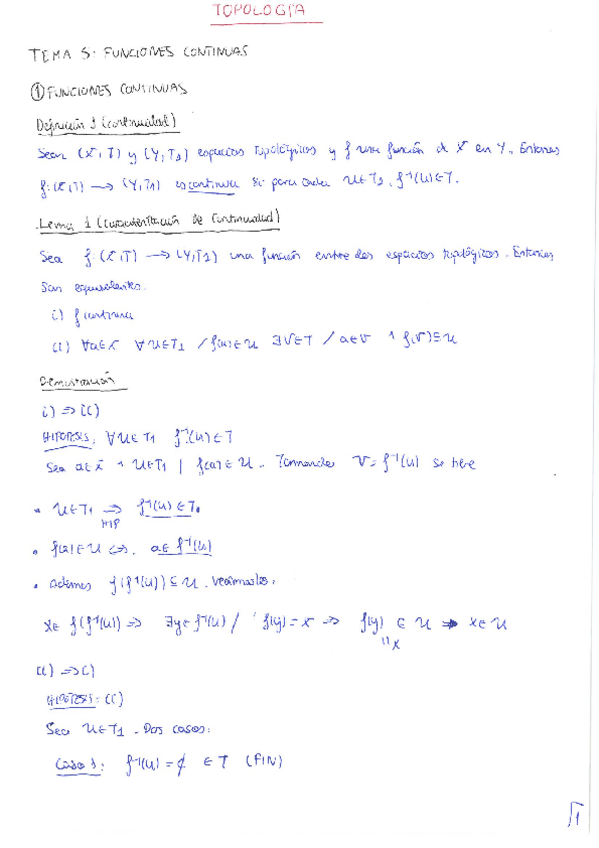 TOPOLOGÍA
TEMA 5: FUNCIONES CONTINUAS
① FUNCIONES CONTINUAS
Definición 1 (continuidad)
Sean (X,T) y (Y,T₁) espacios topológicos y f una función de X en Y. Entonces
f:(X,T) → (Y,T₁) es continua si para cada U∈T₁, f⁻¹(U)∈T.
Lema 1 (caracterización de continuidad)
Sea f:(X,T) → (Y,T₁) una función entre dos espacios topológicos. Entonces
son equivalentes:
i) f continua
ii) ∀a∈X ∀U∈T₁ / f(a)∈U ∃V∈T / a∈V ∧ f(V)⊆U
Demostración
i) ⇒ ii)
HIPÓTESIS: ∀U∈T₁ f⁻¹(U)∈T
Sea a∈X ∧ U∈T₁ | f(a)∈U. Tomando V=f⁻¹(U) se tiene
• U∈T₁ ⇒ f⁻¹(U)∈T.
HIP
• f(a)∈U ⇔ a∈f⁻¹(U)
• además f(f⁻¹(U))⊆U. Veámoslo:
x∈f(f⁻¹(U)) ⇒ ∃y∈f⁻¹(U) / f(y)=x ⇒ f(y)∈U ⇒ x∈U
॥x
ii) ⇒ i)
HIPÓTESIS: ii)
Sea U∈T₁. Dos casos:
Caso 1: f⁻¹(U)=∅ ∈T (FIN)
1